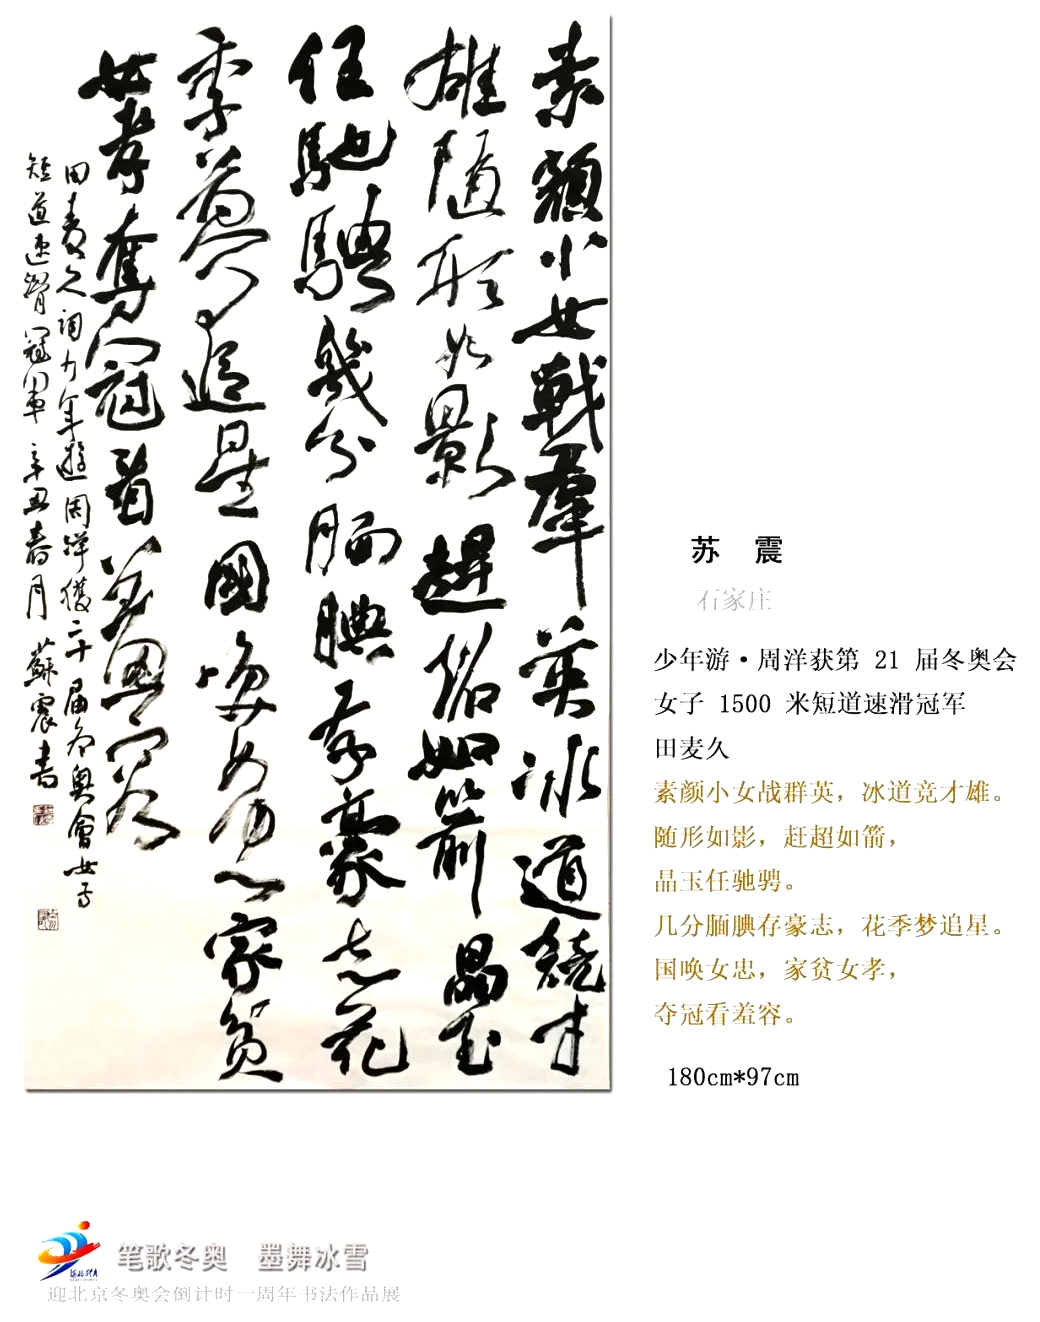 素颜小女战群英冰道竞才
雄随形如影赶超如箭晶玉
任驰骋几分腼腆存豪志花
季梦追星国唤女忠家贫
女孝夺冠看羞容
田麦久词少年游周洋获二十届冬奥会女子
短道速滑冠军辛丑春月苏震书
苏 震
石家庄
少年游·周洋获第 21 届冬奥会
女子 1500 米短道速滑冠军
田麦久
素颜小女战群英，冰道竞才雄。
随形如影，赶超如箭，
晶玉任驰骋。
几分腼腆存豪志，花季梦追星。
国唤女忠，家贫女孝，
夺冠看羞容。
180cm*97cm
笔歌冬奥 墨舞冰雪
迎北京冬奥会倒计时一周年书法作品展